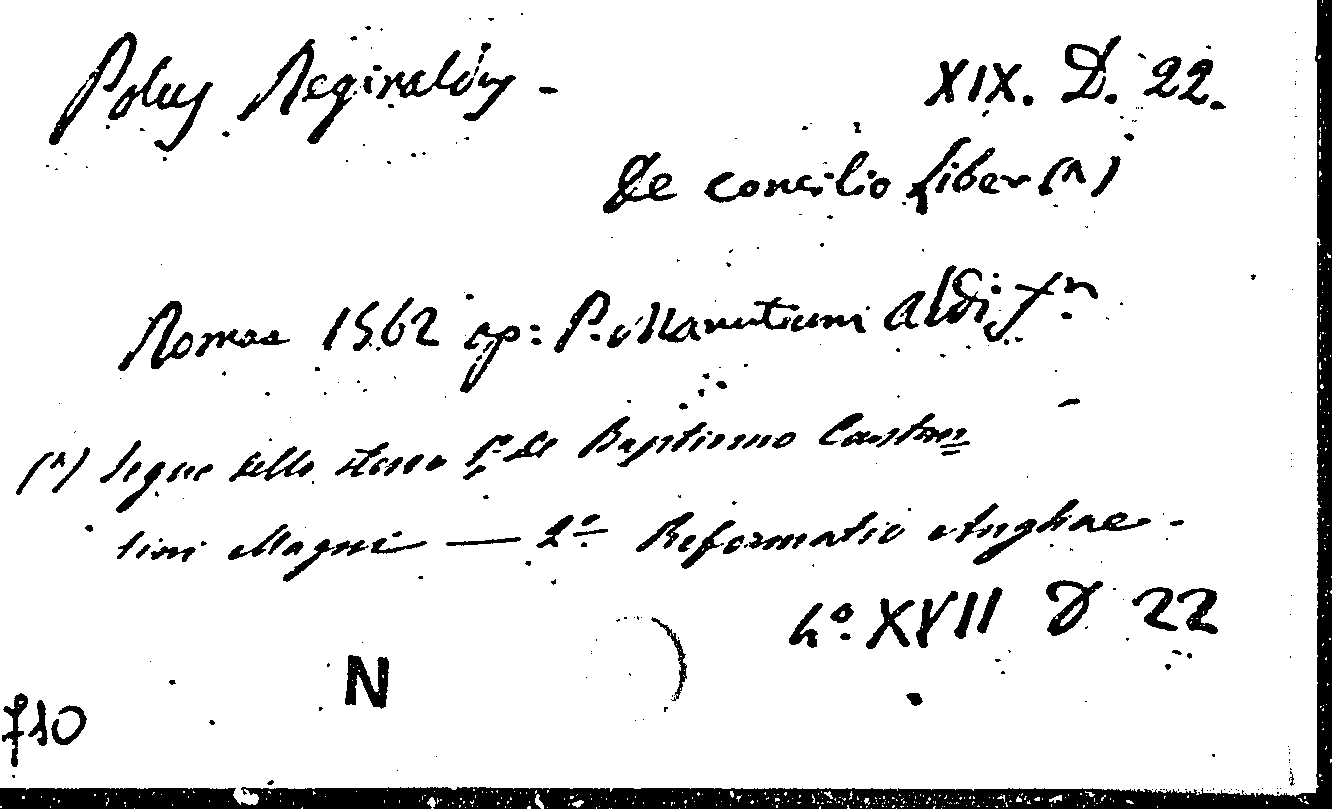 Polus Reginaldus - XIX. D. 22.
De concilio liber (A)
Romae 1562 ap: P. Manutium Aldi f.
(A) Segue dello stesso 1° de Baptismo Constan
tini Magni — 2° Reformatio Angliae -
4°. XVII D 22
N
710